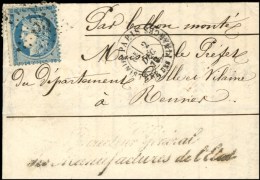 Par ballon monté
Monsieur le Préfet
du Département d'Ille et Vilaine
à Rennes
PARIS
Directeur Général
des Manufactures de l'Etat